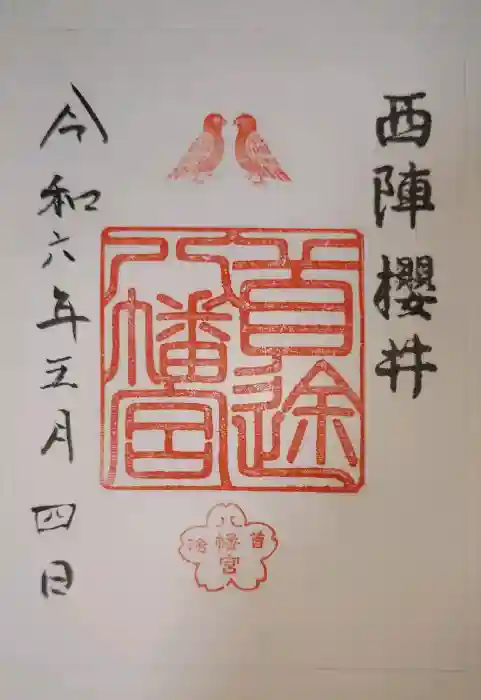 西陣櫻井
首途
八幡宮
首途
八幡宮
令和六年五月四日